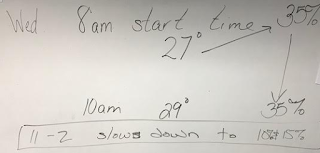 Wed 8am start time 35%
27°
10am 29° 35%
11-2 slows down to 15%